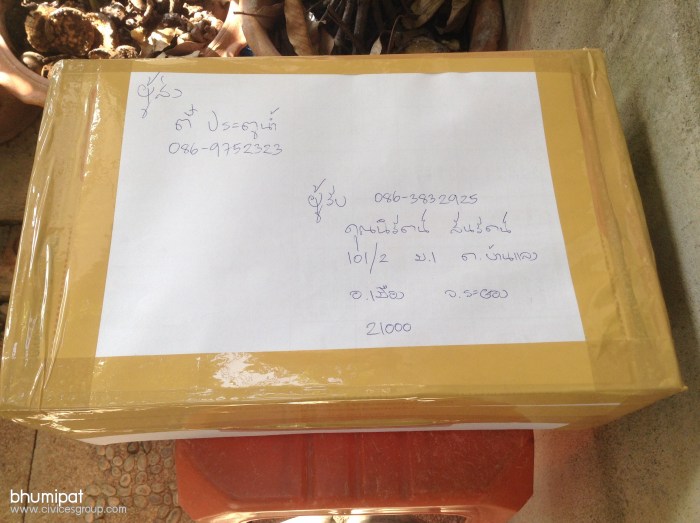 ผู้ส่ง
ตี๋ ประตูน้ำ
086-9752323
ผู้รับ 086-3832925
คุณนิรัตน์ สินรัตน์
101/2 ม.1 ต.บ้านแลง
อ.เมือง จ.ระยอง
21000
bhumipat
www.civicesgroup.com